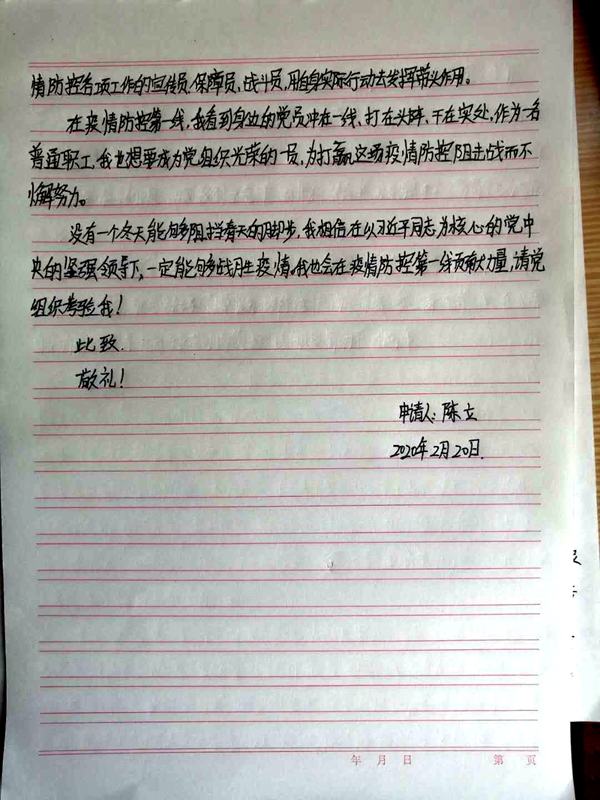 情防控各项工作的宣传员、保障员、战斗员,用自身实际行动去发挥带头作用。
在疫情防控第一线,我看到身边的党员冲在一线、打在头阵、干在实处,作为一名
普通职工,我也想要成为党组织光荣的一员,为打赢这场疫情防控阻击战而不
懈努力。
没有一个冬天能够阻挡春天的脚步,我相信在以习近平同志为核心的党中
央的坚强领导下,一定能够战胜疫情。我也会在疫情防控第一线贡献力量,请党
组织考验我!
此致
敬礼!
申请人:陈立
2020年2月20日
年 月 日 第 页